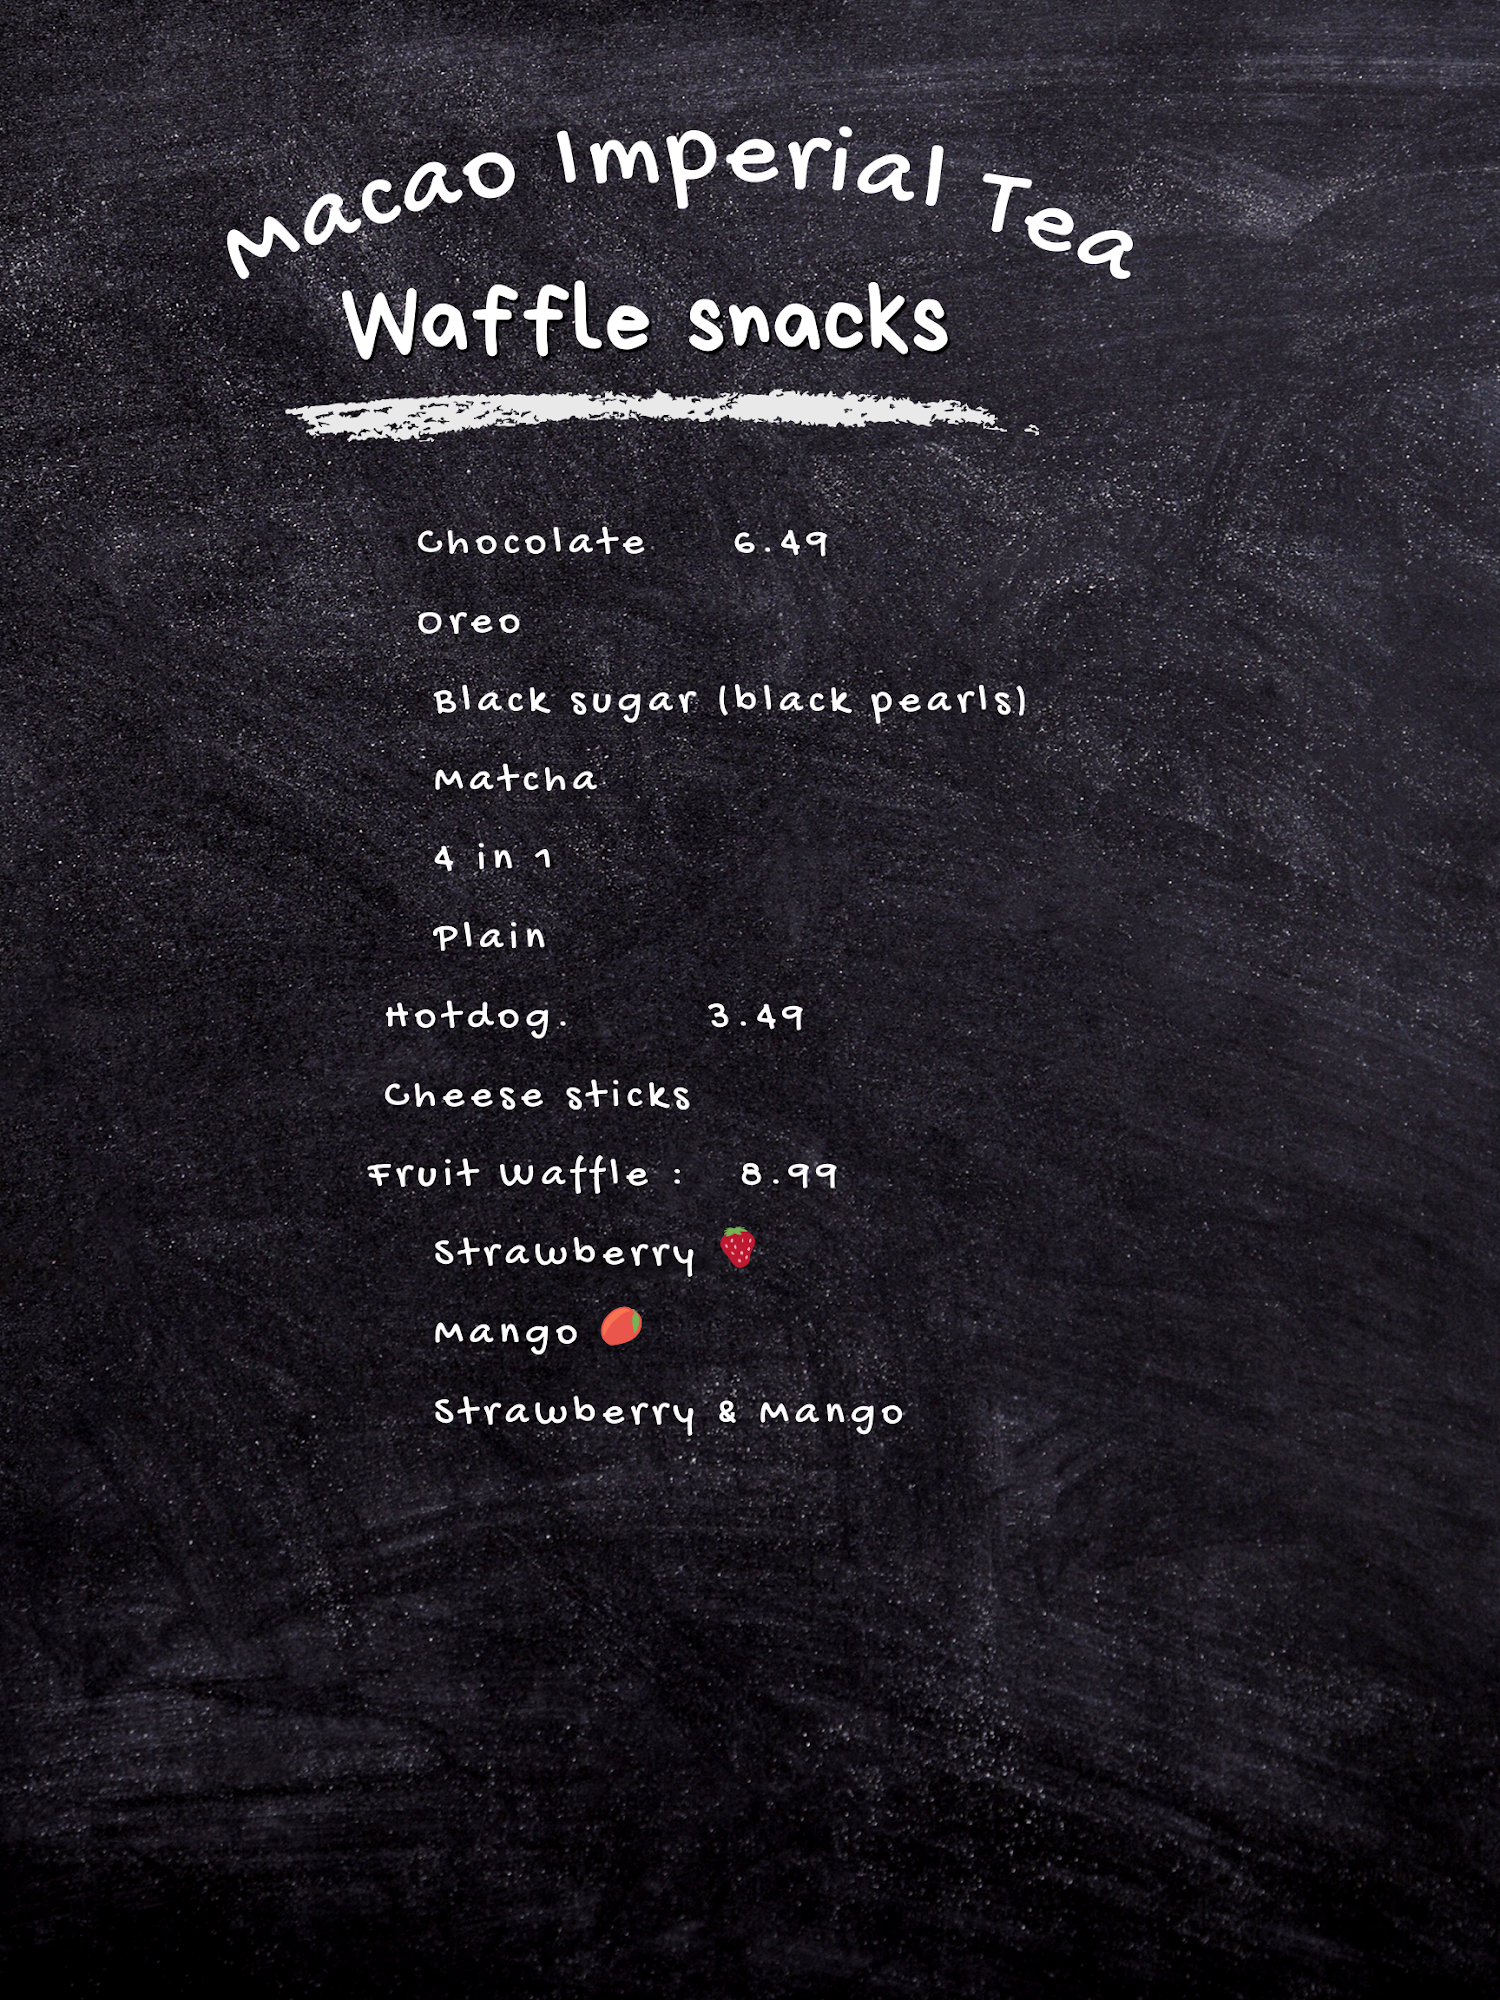 Macao Imperial Tea
Waffle snacks
Chocolate 6.49
Oreo
Black sugar (black pearls)
Matcha
4 in 1
Plain
Hotdog. 3.49
Cheese sticks
Fruit Waffle : 8.99
Strawberry 🍓
Mango 🥭
Strawberry & Mango